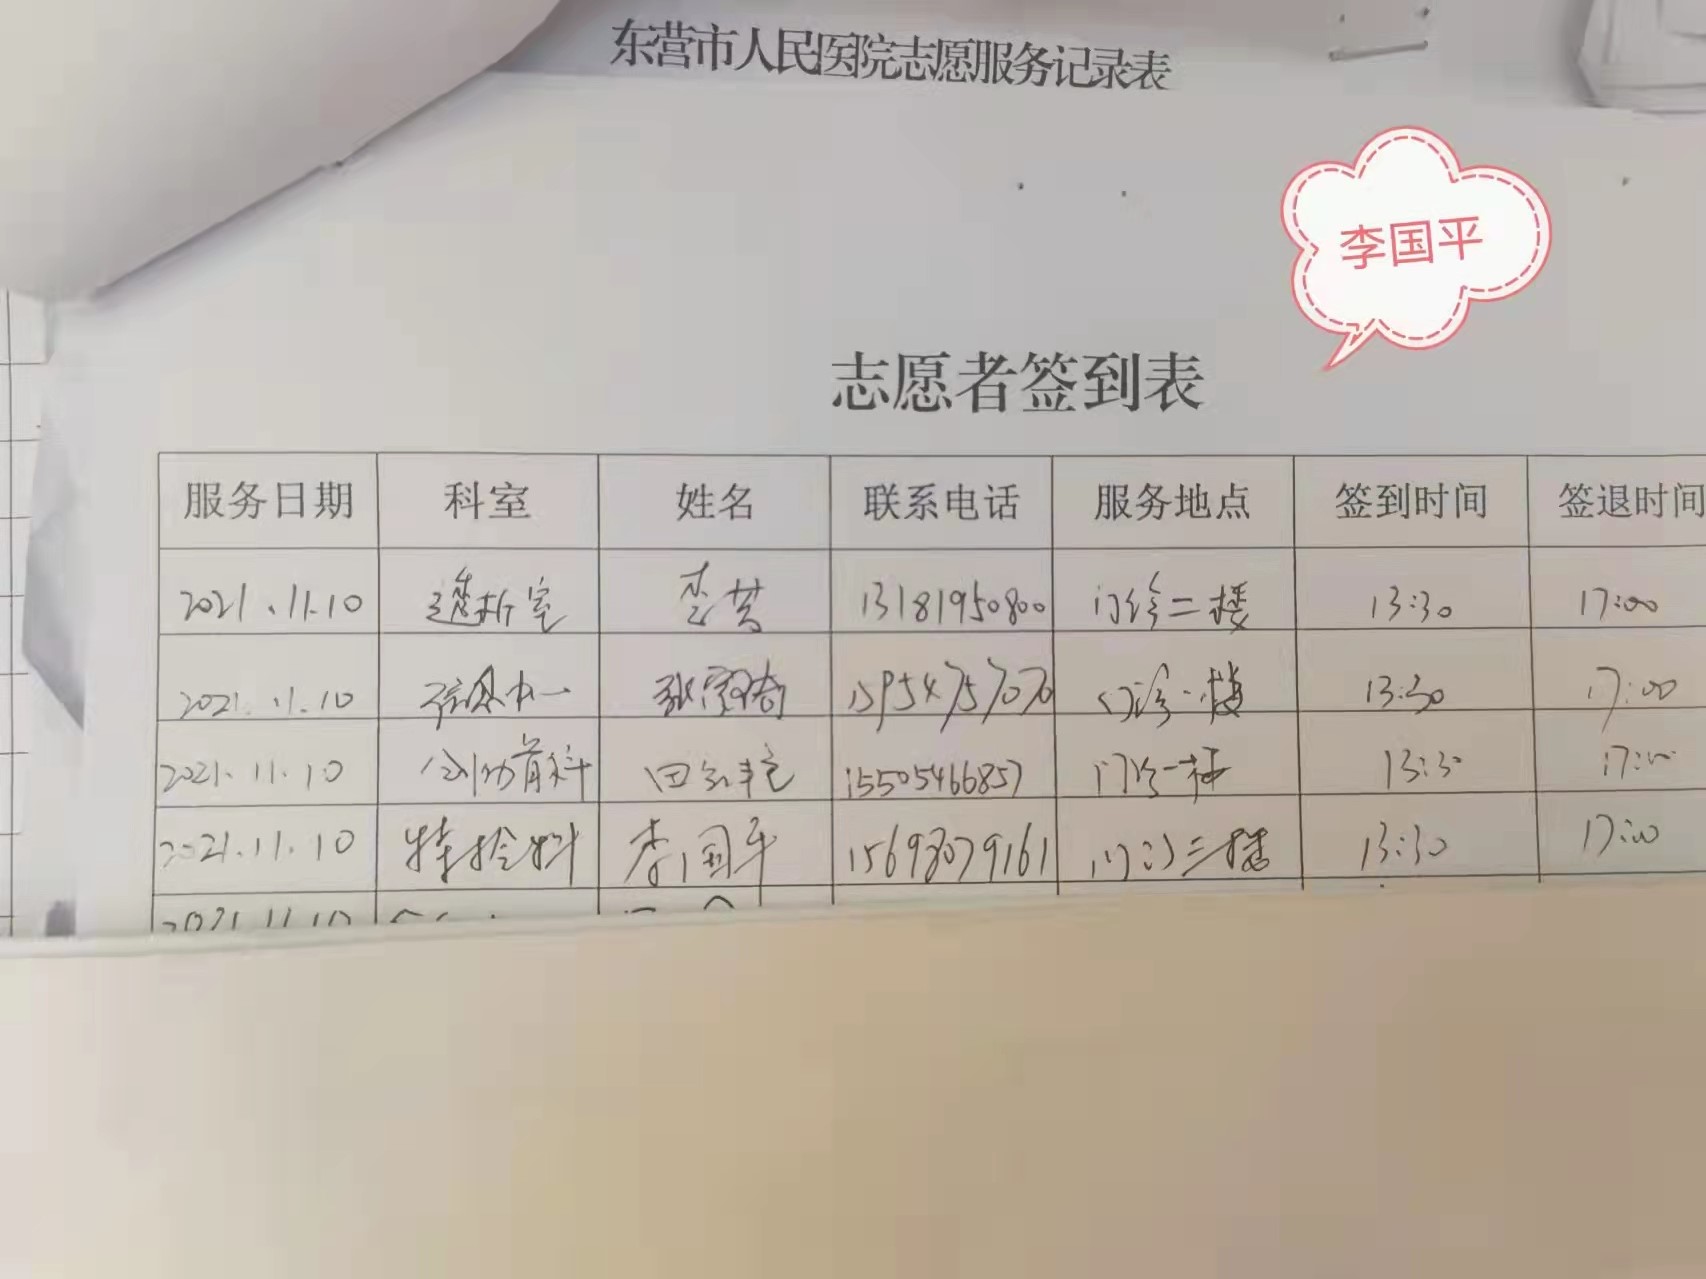 东营市人民医院志愿服务记录表
李国平
志愿者签到表
服务日期 科室 姓名 联系电话 服务地点 签到时间 签退时间
2021.11.10 透析室 李芸 13181950800 门诊二楼 13:30 17:00
2021.11.10 15954757070 门诊一楼 13:30 17:00
2021.11.10 15505466857 门诊一楼 13:30 17:00
2021.11.10 特检科 李国平 15698079161 门诊三楼 13:30 17:00
2021.11.10